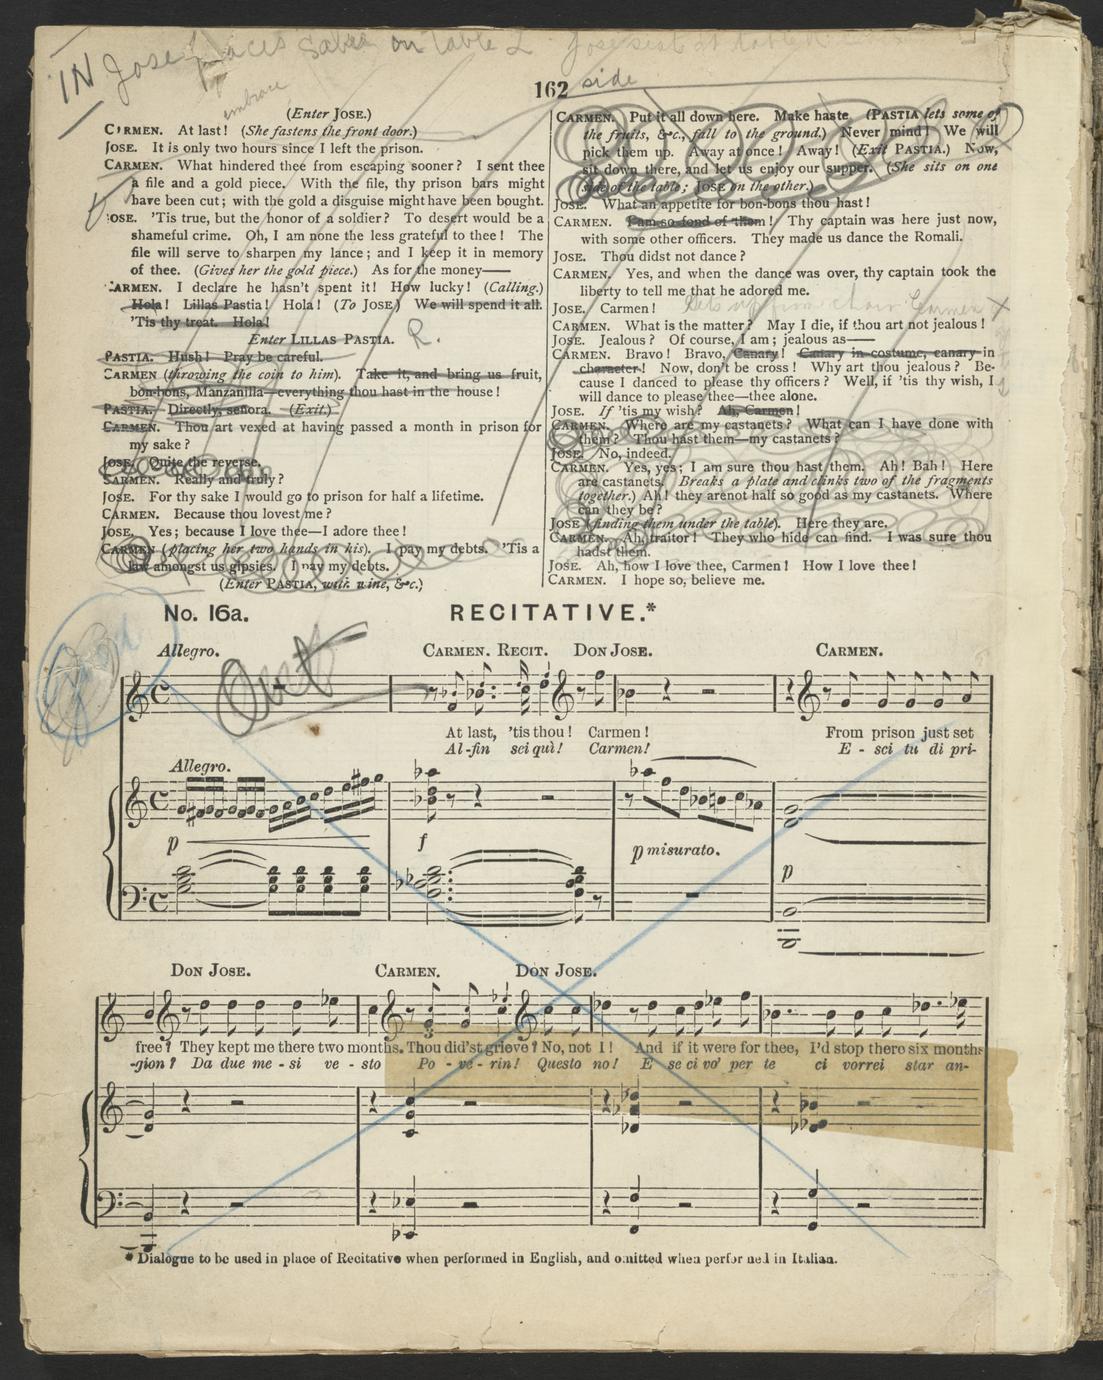 IN Jose places Saber on table L
side
embrace
162
(Enter JOSE.)
CARMEN. At last! (She fastens the front door.)
JOSE. It is only two hours since I left the prison.
CARMEN. What hindered thee from escaping sooner? I sent thee
a file and a gold piece. With the file, thy prison bars might
have been cut; with the gold a disguise might have been bought.
JOSE. 'Tis true, but the honor of a soldier? To desert would be a
shameful crime. Oh, I am none the less grateful to thee! The
file will serve to sharpen my lance; and I keep it in memory
of thee. (Gives her the gold piece.) As for the money——
CARMEN. I declare he hasn't spent it! How lucky! (Calling.)
Hola! Lillas Pastia! Hola! (To JOSE) We will spend it all.
'Tis thy treat. Hola!
Enter LILLAS PASTIA. R.
PASTIA. Hush! Pray be careful.
CARMEN (throwing the coin to him). Take it, and bring us fruit,
bon-bons, Manzanilla—everything thou hast in the house!
PASTIA. Directly, señora. (Exit.)
CARMEN. Thou art vexed at having passed a month in prison for
my sake?
JOSE. Quite the reverse.
CARMEN. Really and truly?
JOSE. For thy sake I would go to prison for half a lifetime.
CARMEN. Because thou lovest me?
JOSE. Yes; because I love thee—I adore thee!
CARMEN (placing her two hands in his). I pay my debts. 'Tis a
law amongst us gipsies. I pay my debts.
(Enter PASTIA, with wine, &c.)
CARMEN. Put it all down here. Make haste (PASTIA lets some of
the fruits, &c., fall to the ground.) Never mind! We will
pick them up. Away at once! Away! (Exit PASTIA.) Now,
sit down there, and let us enjoy our supper. (She sits on one
side of the table; JOSE on the other.)
JOSE. What an appetite for bon-bons thou hast!
CARMEN. I am so fond of them! Thy captain was here just now,
with some other officers. They made us dance the Romali.
JOSE. Thou didst not dance?
CARMEN. Yes, and when the dance was over, thy captain took the
liberty to tell me that he adored me.
JOSE. Carmen! Gets up from chair Carmen X
CARMEN. What is the matter? May I die, if thou art not jealous!
JOSE. Jealous? Of course, I am; jealous as——
CARMEN. Bravo! Bravo, Canary! Canary in costume, canary in
character! Now, don't be cross! Why art thou jealous? Be-
cause I danced to please thy officers? Well, if 'tis thy wish, I
will dance to please thee—thee alone.
JOSE. If 'tis my wish? Ah, Carmen!
CARMEN. Where are my castanets? What can I have done with
them? Thou hast them—my castanets?
JOSE. No, indeed.
CARMEN. Yes, yes; I am sure thou hast them. Ah! Bah! Here
are castanets. Breaks a plate and clinks two of the fragments
together.) Ah! they arenot half so good as my castanets. Where
can they be?
JOSE (finding them under the table). Here they are.
CARMEN. Ah, traitor! They who hide can find. I was sure thou
hadst them.
JOSE. Ah, how I love thee, Carmen! How I love thee!
CARMEN. I hope so, believe me.
No. 16a. RECITATIVE.*
Out
Allegro. CARMEN. RECIT. DON JOSE. CARMEN.
At last, 'tis thou! Carmen! From prison just set
Al-fin sei quì! Carmen! E - sci tu di pri-
Allegro.
p f p misurato. p
DON JOSE. CARMEN. DON JOSE.
free? They kept me there two months. Thou did'st grieve? No, not I! And if it were for thee, I'd stop there six months
-gion? Da due me - si ve - sto Po - ve - rin! Questo no! E se ci vo' per te ci vorrei star an-
* Dialogue to be used in place of Recitative when performed in English, and omitted when performed in Italian.